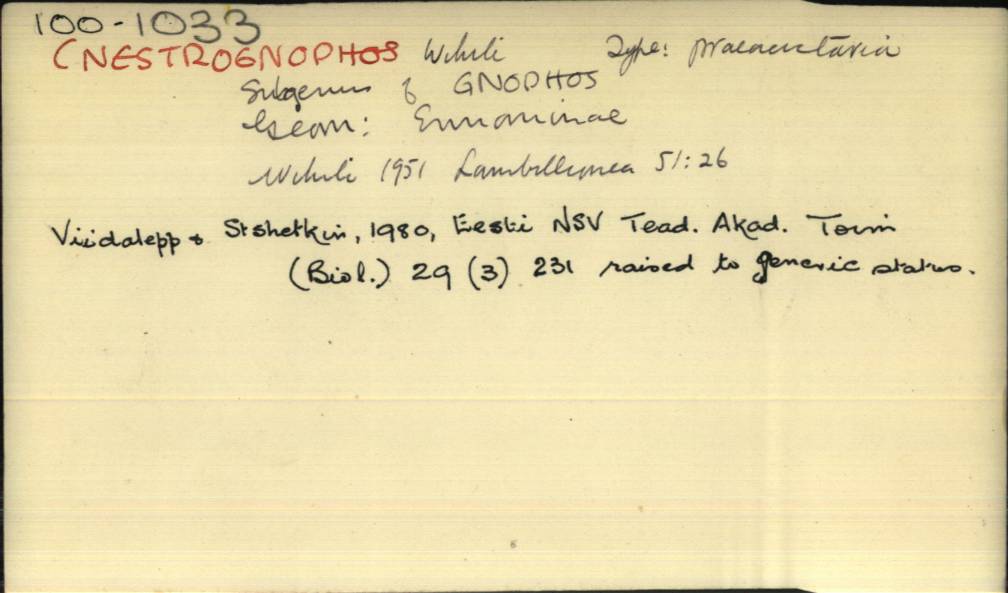 100-1033
CNESTROGNOPHOS Wehrli Type: praeacutaria
Subgenus of GNOPHOS
Geom: Ennominae
Wehrli 1951 Lambillionea 51:26
Viidalepp & Stshetkin, 1980, Eesti NSV Tead. Akad. Toim
(Biol.) 29 (3) 231 raised to generic status.